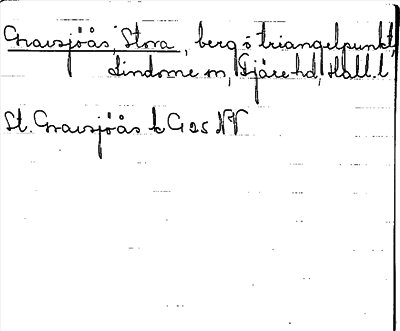 Gravsjöås, Stora, berg o triangelpunkt,
Lindome sn, Fjäre hd, Hall. l
St. Gravsjöås k G 25 NV